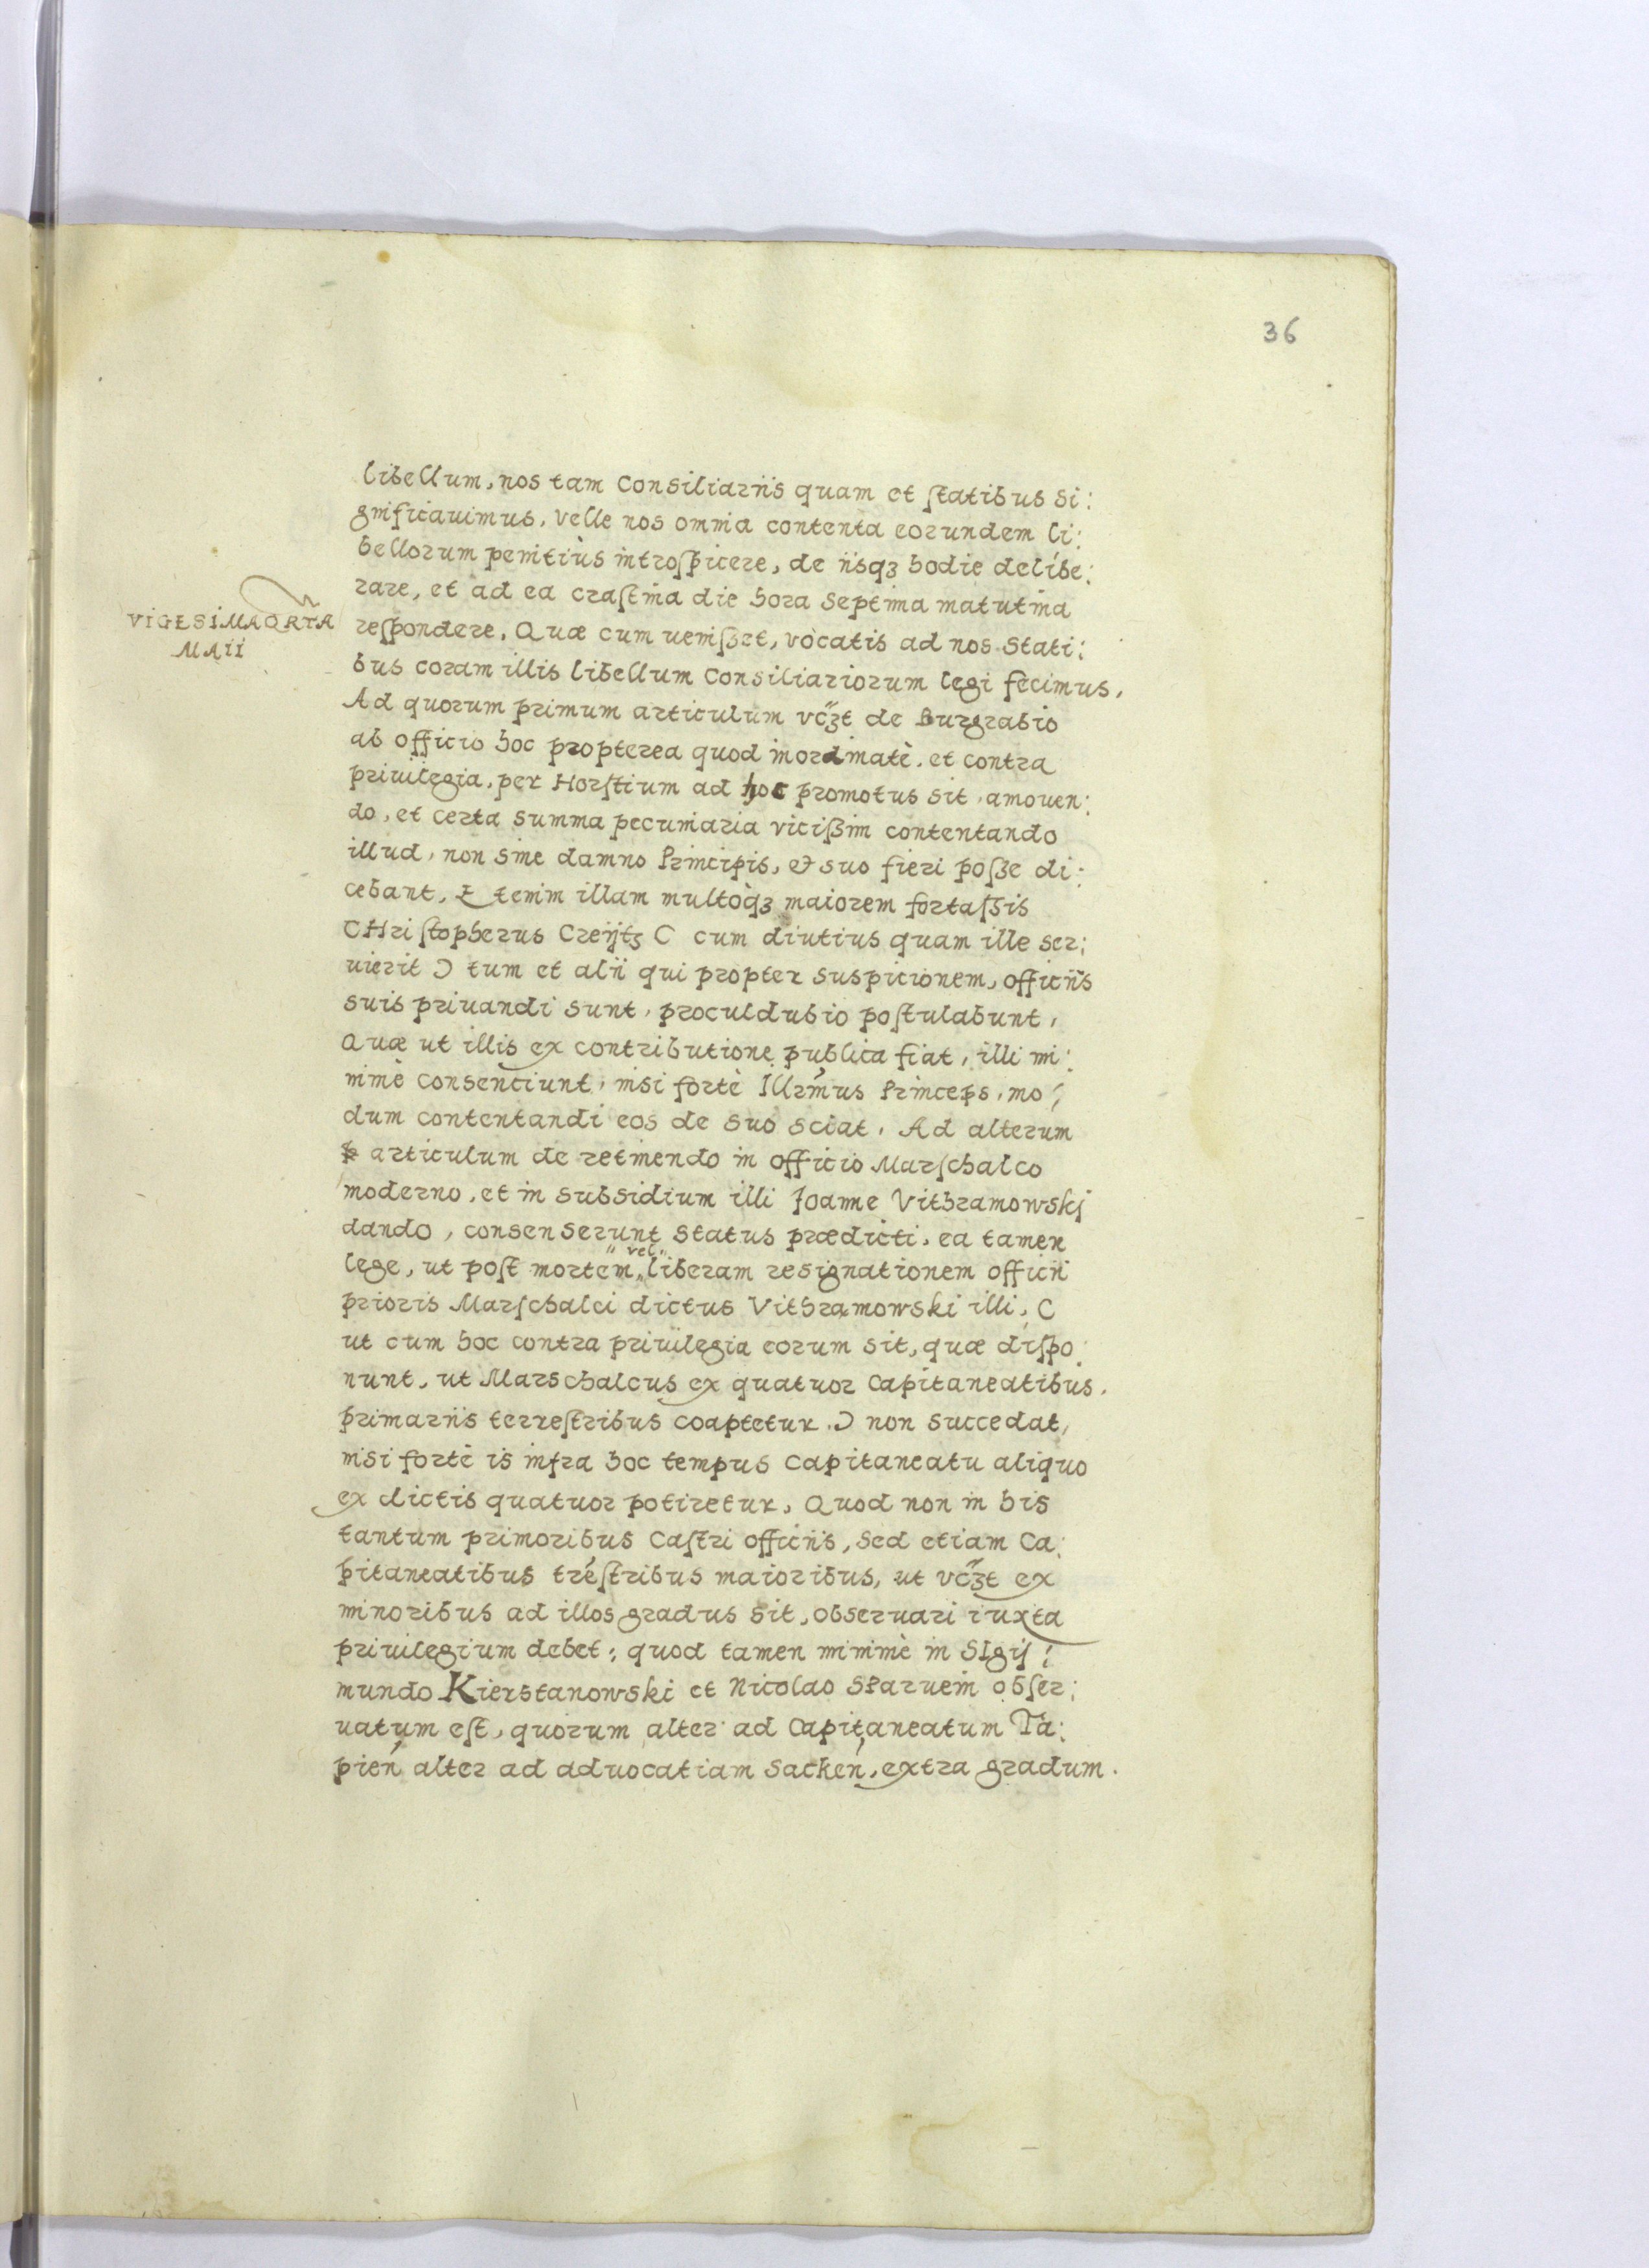 36
libellum, nos tam Consiliariis quam et ſtatibus si:
gnificauimus, Velle nos omnia contenta eorundem li:
bellorum penitiùs introſpicere, de iisqȝ hodie delibe:
rare, et ad ea craſtina die hora septima matutina
VIGESIMAQRTA
MAII
reſpondere, Quæ cum ueniſset, vocatis ad nos Stati:
bus coram illis libellum Consiliariorum legi fecimus,
Ad quorum primum articulum vc̃ȝt de Burgrabio
ab officio hoc propterea quod inordinatè, et contra
priuilegia, per Horſtium ad hoc promotus sit, amouen:
do, et certa summa pecuniaria viciſsim contentando
illud, non sine damno Principis, et suo fieri poſse di:
cebant, Etenim illam multòqȝ maiorem fortaſsis
CHriſtopherus Creijtȝ C cum diutius quam ille ser:
uierit Ɔ tum et alii qui propter suspicionem, officiis
suis priuandi sunt, proculdubio poſtulabunt,
Quæ ut illis ex contributione publica fiat, illi mi:
nimè consentiunt, nisi fortè Illrm̃us Princeps, mo:
dum contentandi eos de suo sciat, Ad alterum
articulum de retinendo in officio Marſchalco
moderno, et in subsidium illi Joanne Vithramowskj
dando, consenserunt status prædicti, ea tamen
lege, ut poſt mortem „vel„ liberam resignationem officii
prioris Marſchalci dictus Vithramowski illi, C
ut cum hoc contra priuilegia eorum sit, quæ diſpo:
nunt, ut Marschalcus ex quatuor Capitaneatibus,
primariis terreſtribus coaptetur Ɔ non succedat,
nisi fortè is infra hoc tempus Capitaneatu aliquo
ex dictis quatuor potiretur, Quod non in his
tantum primoribus Caſtri officiis, Sed etiam Ca:
pitaneatibus tréſtribus maioribus, ut vc̃ȝt ex
minoribus ad illos gradus sit, obseruari iuxta
priuilegium debet: quod tamen minimè in SIgiſ:
mundo Kierstanowski et Nicolao SParuein obſer:
uatum eſt, quorum alter ad Capitaneatum Ta:
pien̕ alter ad aduocatiam Sacken̕, extra gradum.